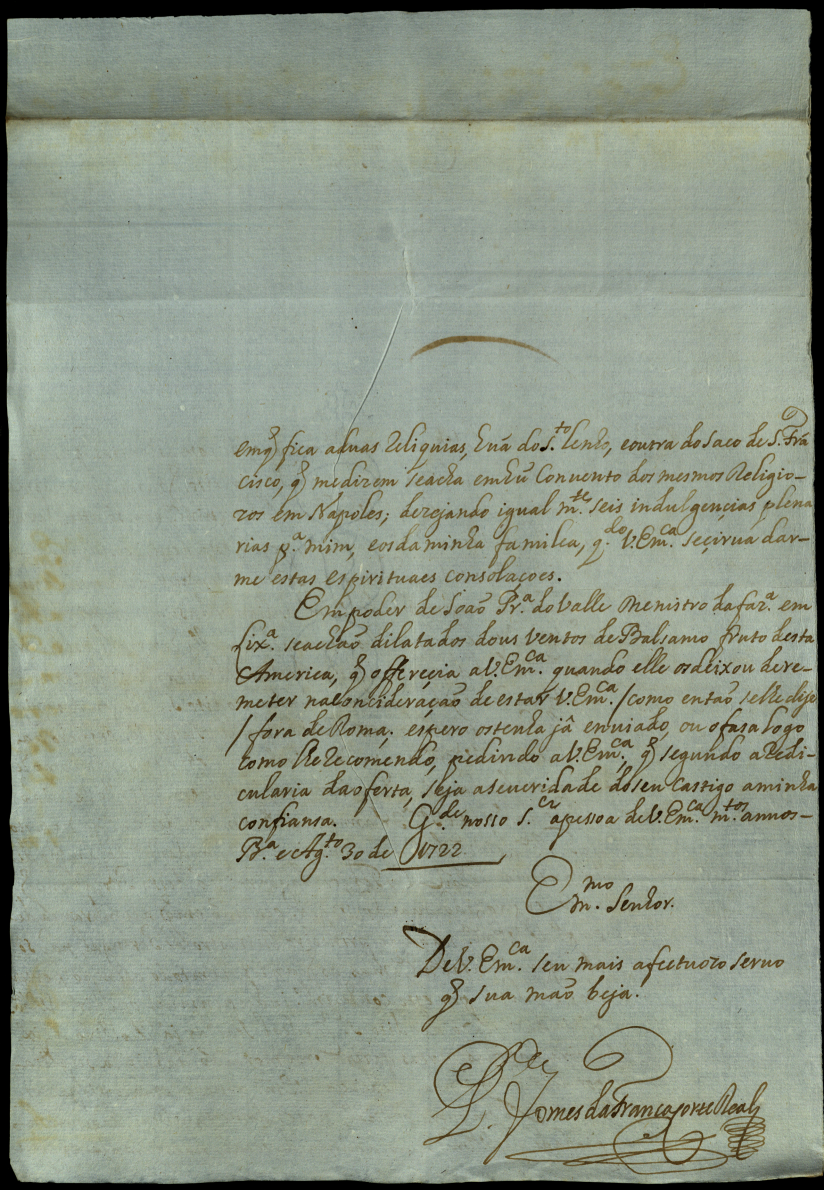 em q̃ fica aduas Reliquias, huã do S.to lenho, eoutra do Saco de S. Frã
cisco, q̃ medizem seacha emhũ Convento dos mesmos Religio-
zos em Napoles; dezejando igual m.te seis indulgencias plena
rias p.a mim, eosdaminha familea, q.do V. Em.ca seçirua dar-
me estas espirituaes consolaçoes.
Empoder de João Pr.a do Valle Menistro dafaz.a em
Lix.a seachaõ dilatados dous Ventos de Balsamo fruto desta
America, q̃ offereçia a V. Em.ca quando elle osdeixou dere-
meter naConcideraçaõ de estar V. Em.ca / como entaõ selhe dise
/ fora de Roma; espero ostenha jâ enuiado, ou ofasa logo
como lhe Recomendo, pedindo a V. Em.ca q̃ segundo aRedi-
cularia daoferta, seja aseueridade doseu Castigo aminha
confiansa. G.de nosso S.or apessoa de V. Em.ca m.tos annos-
B.a e Ag.to 30 de 1722
Em.mo Senhor.
De V. Em.ca seu mais afectuozo seruo
q̃ sua maõ beja.
L. Gomes da Franca Corte Real